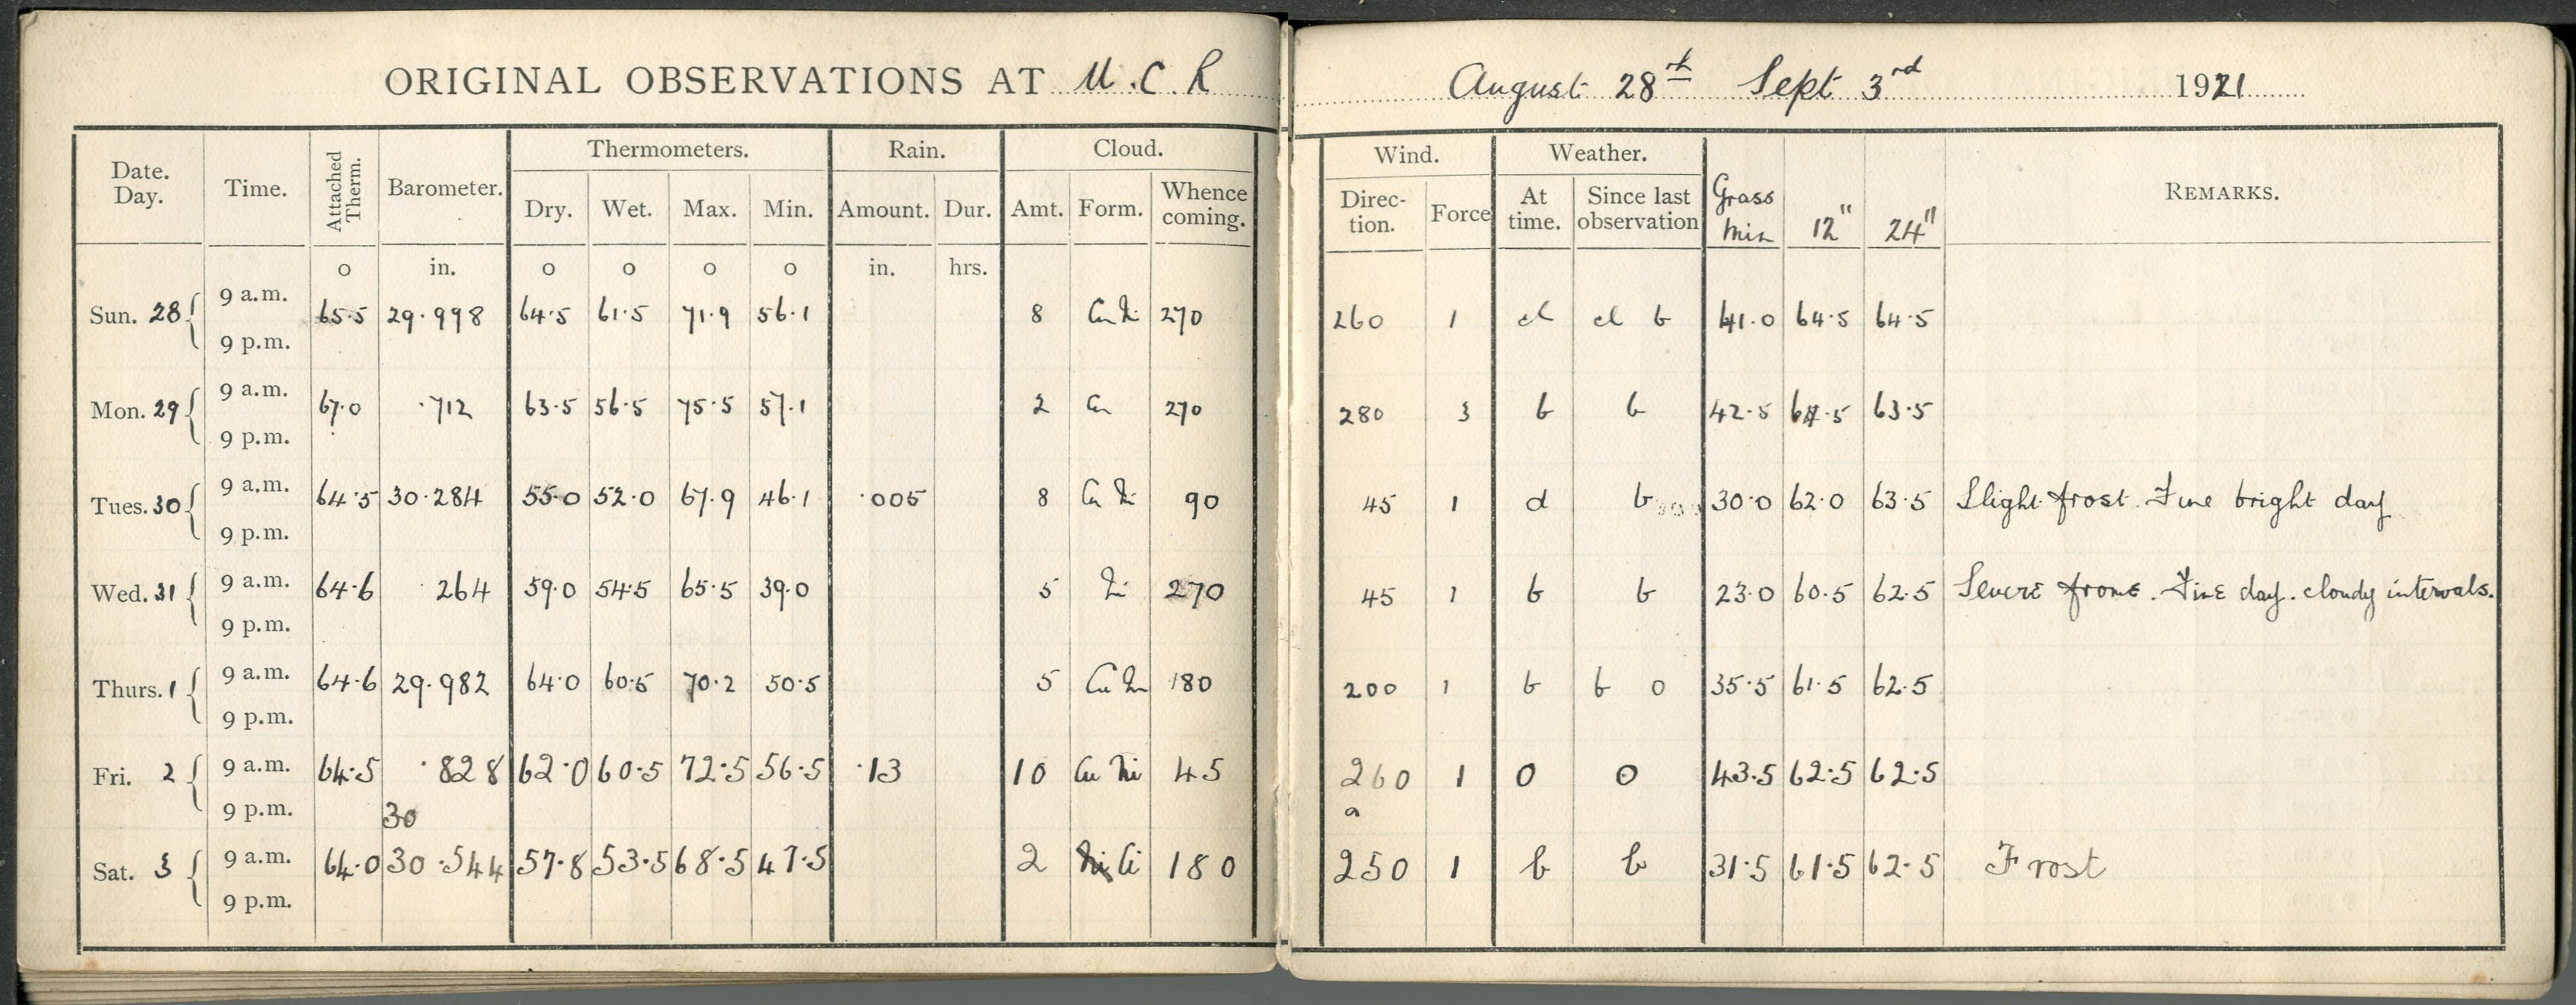 ORIGINAL OBSERVATIONS AT U.C.R August 28th Sept 3rd 1921
Date. Day. Time. Attached Therm. Barometer. Thermometers. Rain. Cloud. Wind. Weather. Grass min 12" 24" REMARKS.
Dry. Wet. Max. Min. Amount. Dur. Amt. Form. Whence coming. Direction. Force At time. Since last observation
o in. o o o o in. hrs.
Sun. 28 9 a.m. 65.5 29.998 64.5 61.5 71.9 56.1 8 270 260 1 cl cl b 41.0 64.5 64.5
9 p.m.
Mon. 29 9 a.m. 67.0 .712 63.5 56.5 75.5 57.1 2 Cu 270 280 3 b b 42.5 64.5 63.5
9 p.m.
Tues. 30 9 a.m. 64.5 30.284 55.0 52.0 67.9 46.1 .005 8 Cu Ni 90 45 1 d b 30.0 62.0 63.5 Slight frost. Fine bright day
9 p.m.
Wed. 31 9 a.m. 64.6 .264 59.0 54.5 65.5 39.0 5 Ni 270 45 1 b b 23.0 60.5 62.5 Severe . Fine day. cloudy intervals.
9 p.m.
Thurs. 1 9 a.m. 64.6 29.982 64.0 60.5 70.2 50.5 5 Cu 180 200 1 b b o 35.5 61.5 62.5
9 p.m.
Fri. 2 9 a.m. 64.5 .828 62.0 60.5 72.5 56.5 .13 10 Cu Ni 45 260 1 o o 43.5 62.5 62.5
9 p.m. 30 a
Sat. 3 9 a.m. 64.0 30.544 57.8 53.5 68.5 47.5 2 Ci 180 250 1 b b 31.5 61.5 62.5 Frost
9 p.m.